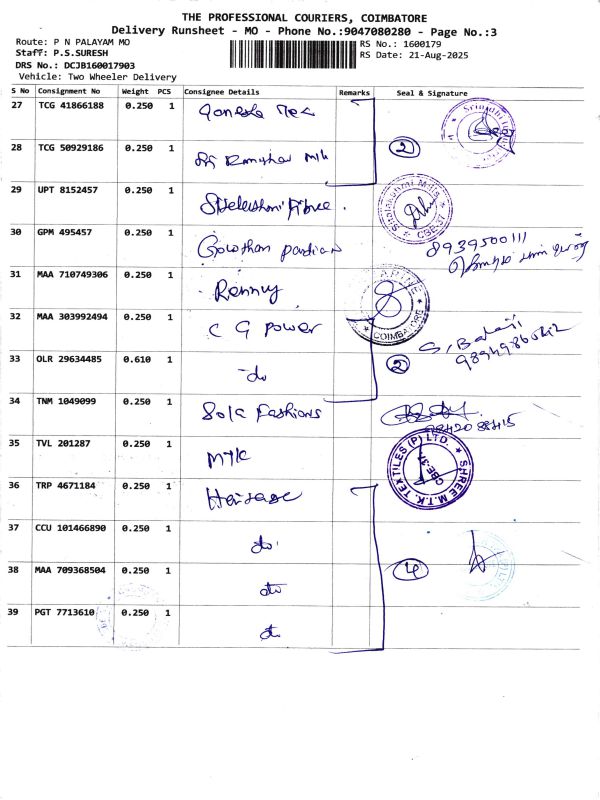 THE PROFESSIONAL COURIERS, COIMBATORE
Delivery Runsheet - MO - Phone No.:9047080280 - Page No.:3
Route: P N PALAYAM MO
RS No.: 1600179
Staff: P.S.SURESH
RS Date: 21-Aug-2025
DRS No.: DCJB160017903
Vehicle: Two Wheeler Delivery
S No Consignment No Weight PCS Consignee Details Remarks Seal & Signature
27 TCG 41866188 0.250 1
28 TCG 50929186 0.250 1 2
29 UPT 8152457 0.250 1
CBE-37
30 GPM 495457 0.250 1 Gowthan pandian 8939500111
31 MAA 710749306 0.250 1 Renny
COIMBATORE
32 MAA 303992494 0.250 1 C G power S. Balaji
33 OLR 29634485 0.610 1 do 2
34 TNM 1049099 0.250 1 Sola Fashions
35 TVL 201287 0.250 1 MTK SHREE M.T.K. TEXTILES (P) LTD. CBE-37
36 TRP 4671184 0.250 1
37 CCU 101466890 0.250 1 do
38 MAA 709368504 0.250 1 do 4
39 PGT 7713610 0.250 1 do